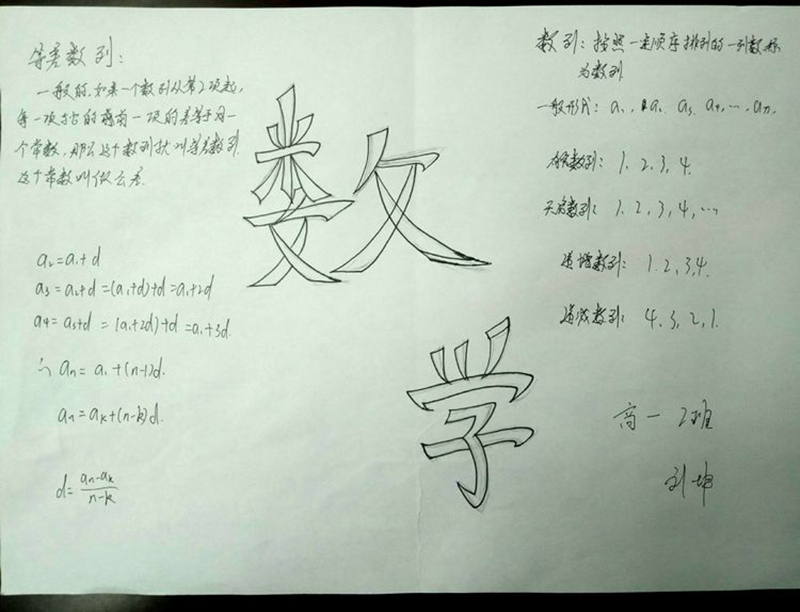 等差数列：
一般的，如果一个数列从第2项起，
每一项与它的前一项的差等于同一
个常数，那么这个数列就叫等差数列.
这个常数叫做公差.
a₂=a₁+d
a₃=a₂+d=(a₁+d)+d=a₁+2d
a₄=a₃+d=(a₁+2d)+d=a₁+3d.
∴ aₙ=a₁+(n-1)d.
aₙ=aₖ+(n-k)d.
d=(aₙ-aₖ)/(n-k)
数
学
数列：按照一定顺序排列的一列数称
为数列.
一般形式：a₁，a₂，a₃，a₄，…，aₙ，
有穷数列：1，2，3，4.
无穷数列：1，2，3，4，…，
递增数列：1，2，3，4.
递减数列：4，3，2，1.
高一 2班
刘坤